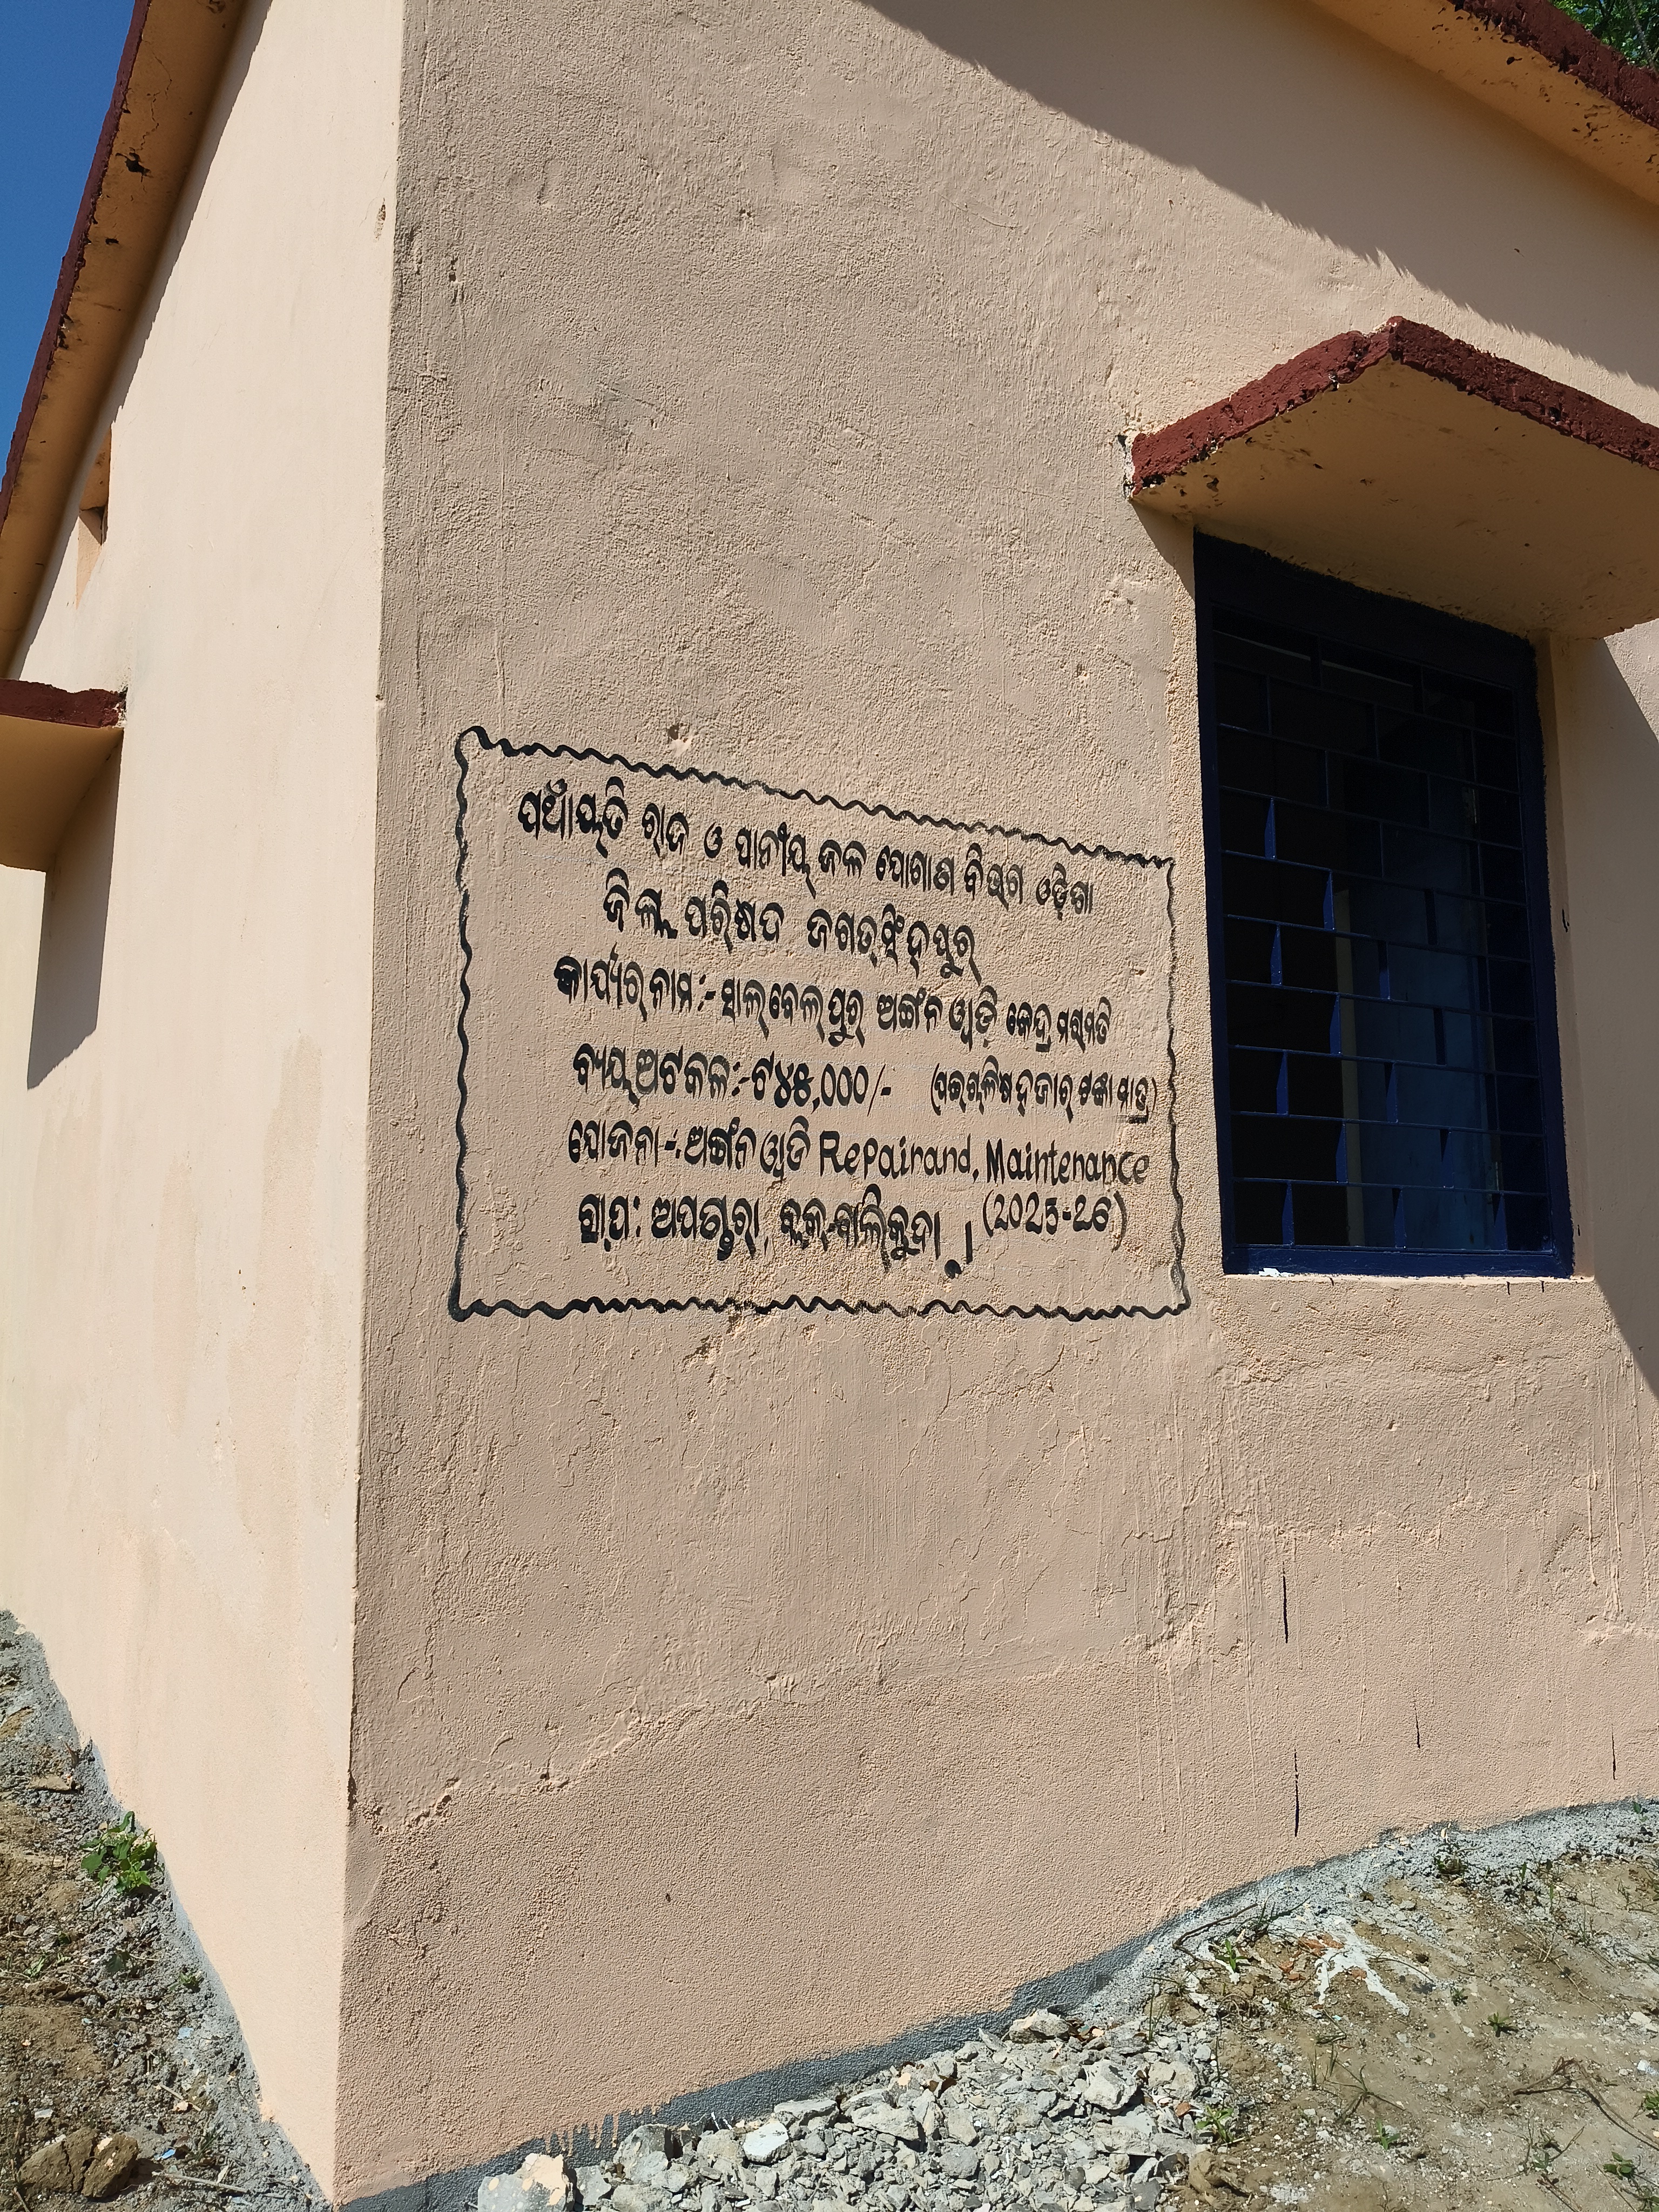 ପଞ୍ଚାୟତି ରାଜ ଓ ପାନୀୟ ଜଳ ଯୋଗାଣ ବିଭାଗ ଓଡ଼ିଶା
ଜିଲ୍ଲା ପରିଷଦ ଜଗତସିଂହପୁର
କାର୍ଯ୍ୟର ନାମ:- ସାଲବେଲପୁର ଅଙ୍ଗନୱାଡ଼ି କେନ୍ଦ୍ର ମରାମତି
ବ୍ୟୟଅଟକଳ:-ଟ୪୫,୦୦୦/- (ପଇଚାଳିଷ ହଜାର ଟଙ୍କା ମାତ୍ର)
ଯୋଜନା-:ଅଙ୍ଗନୱାଡି Repairand, Maintenance
ଗ୍ରା.ପ: ବ୍ଲକ-ବାଲିକୁଦା । (2025-26)